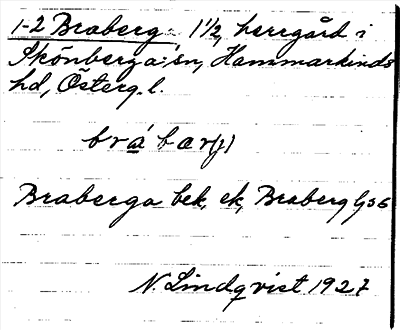 1-2 Braberg 1 1/2, herrgård i
Skönberga sn, Hammarkinds
hd, Österg. l.
brábær(j)
Braberga bek, ek, Braberg Gs6
N. Lindqvist 1927